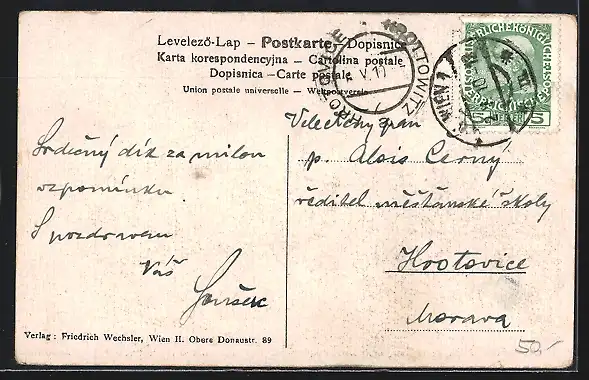 Levelező-Lap – Postkarte – Dopisnice
Karta korespondencyjna – Cartolina postale
Dopisnica – Carte postale
Union postale universelle – Weltpostverein
HROTOVICE HROTOWITZ
WIEN
5
Velectěný pan
p. Alois Černý
ředitel měšťanské školy
Hrotovice
Morava
Srdečný dík za milou
vzpomínku
S pozdravem
Váš
Verlag: Friedrich Wechsler, Wien II. Obere Donaustr. 89
50,-